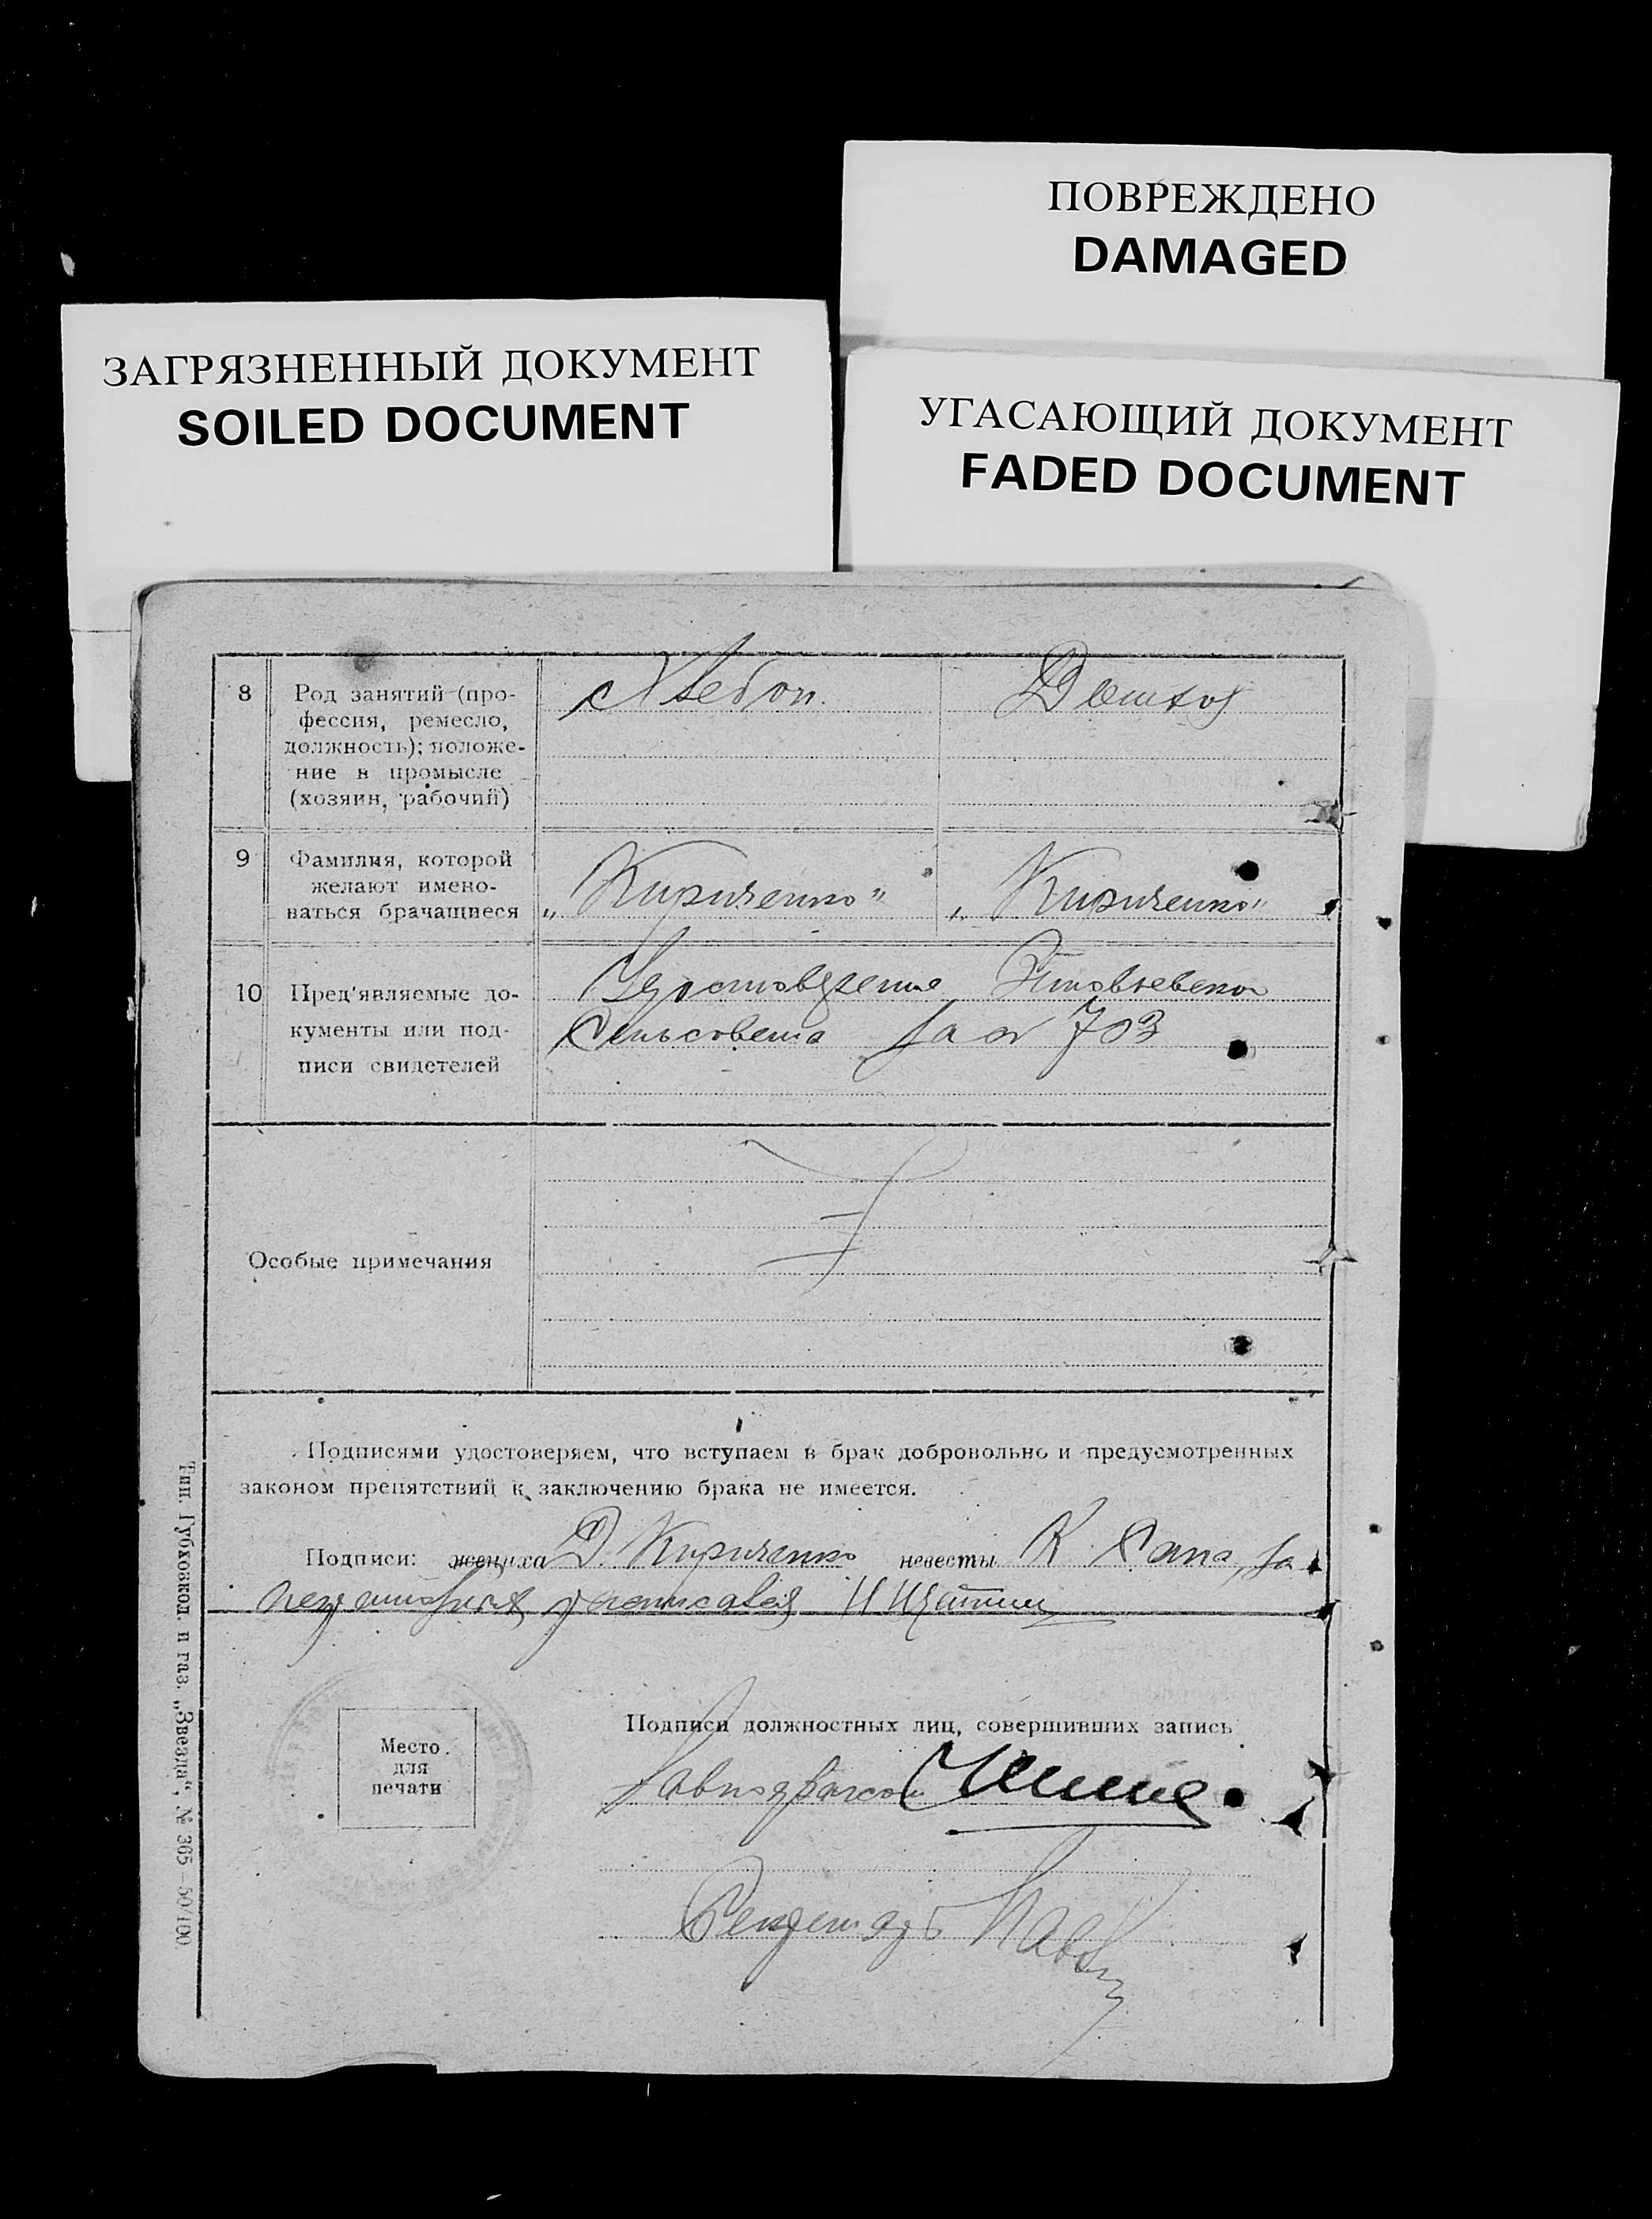 ПОВРЕЖДЕНО
DAMAGED
ЗАГРЯЗНЕННЫЙ ДОКУМЕНТ
SOILED DOCUMENT
УГАСАЮЩИЙ ДОКУМЕНТ
FADED DOCUMENT
8
Род занятий (про-
фессия, ремесло,
должность); положе-
ние в промысле
(хозяин, рабочий)
Хлебоп.
Домхоз
9
Фамилия, которой
желают имено-
ваться брачащиеся
„Кириченко"
„Кириченко"
10
Пред'являемые до-
кументы или под-
писи свидетелей
Удостоверение
Сельсовета за № 703
Особые примечания
Подписями удостоверяем, что вступаем в брак добровольно и предусмотренных
законом препятствий к заключению брака не имеется.
Подписи: жениха Д. Кириченко невесты К. за
неграмотных расписался
Место
для
печати
Подписи должностных лиц, совершивших запись
Тип. Губховкол и газ. „Звезда", № 365—50/100.